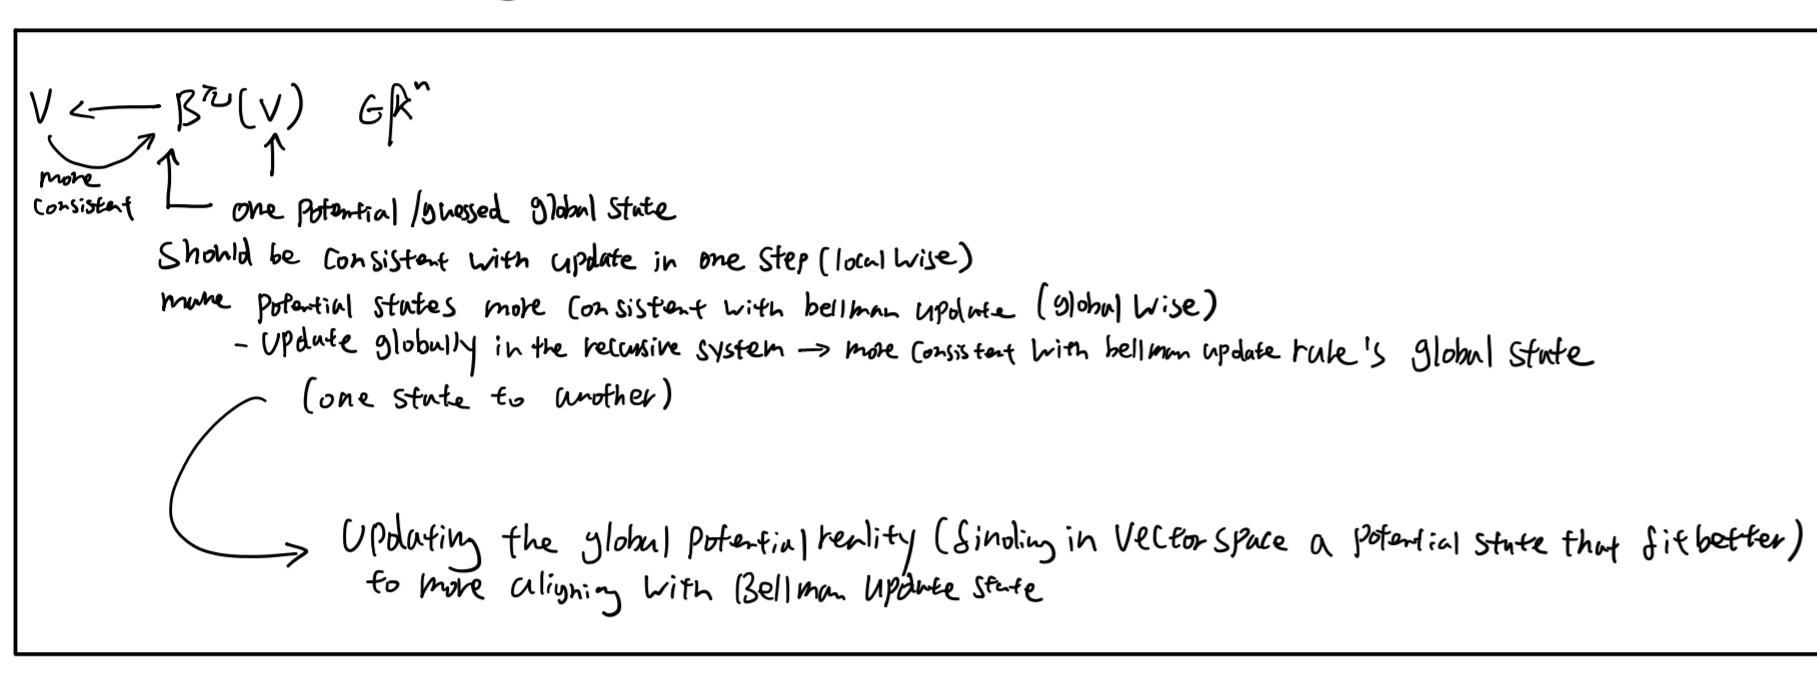 V ← B^π(V) ∈ ℝ^n
more
consistent
one potential/guessed global state
should be consistent with update in one step (local wise)
make potential states more consistent with bellman update (global wise)
- update globally in the recursive system → more consistent with bellman update rule's global state
(one state to another)
updating the global potential reality (finding in vector space a potential state that fit better)
to more aligning with Bellman update state